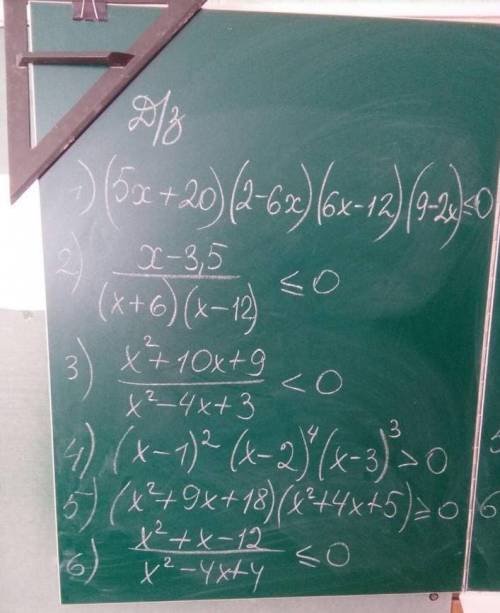 Д/з
1) (5x+20)(2-6x)(6x-12)(9-2x)≤0
2) (x-3,5)/((x+6)(x-12)) ≤ 0
3) (x²+10x+9)/(x²-4x+3) < 0
4) (x-1)² (x-2)⁴ (x-3)³ > 0
5) (x²+9x+18)(x²+4x+5) ≥ 0
6) (x²+x-12)/(x²-4x+4) ≤ 0